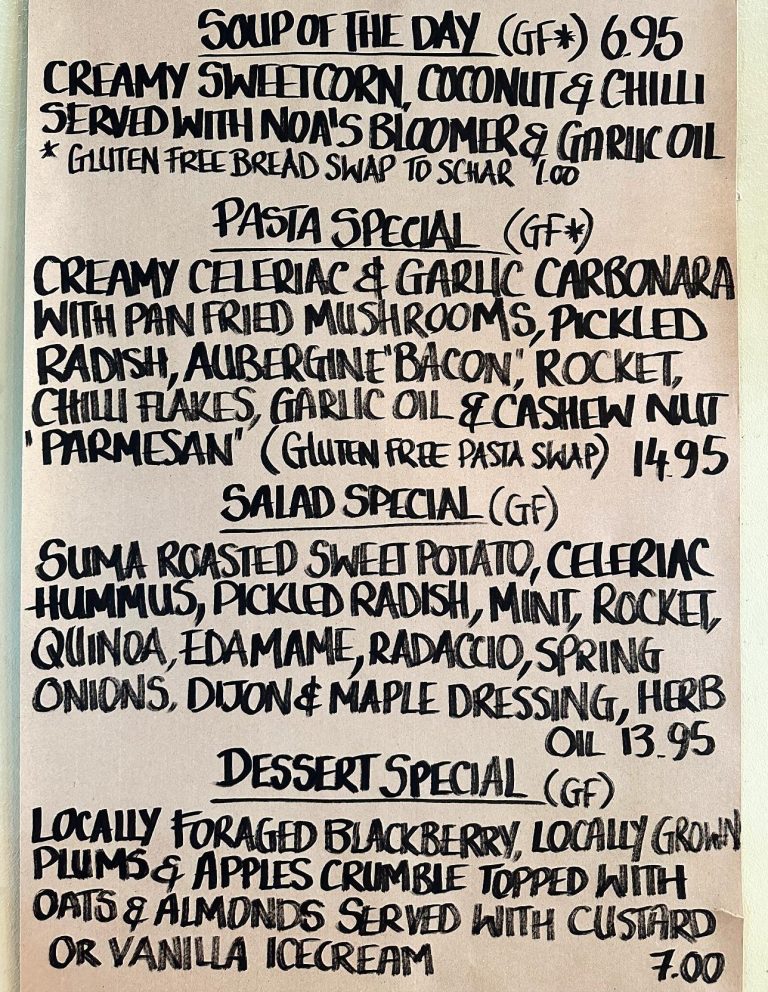 SOUP OF THE DAY (GF*) 6.95
CREAMY SWEETCORN, COCONUT & CHILLI
SERVED WITH NOA'S BLOOMER & GARLIC OIL
* GLUTEN FREE BREAD SWAP TO SCHAR 1.00
PASTA SPECIAL (GF*)
CREAMY CELERIAC & GARLIC CARBONARA
WITH PAN FRIED MUSHROOMS, PICKLED
RADISH, AUBERGINE "BACON", ROCKET,
CHILLI FLAKES, GARLIC OIL & CASHEW NUT
"PARMESAN" (GLUTEN FREE PASTA SWAP) 14.95
SALAD SPECIAL (GF)
SUMA ROASTED SWEET POTATO, CELERIAC
HUMMUS, PICKLED RADISH, MINT, ROCKET,
QUINOA, EDAMAME, RADACCIO, SPRING
ONIONS, DIJON & MAPLE DRESSING, HERB
OIL 13.95
DESSERT SPECIAL (GF)
LOCALLY FORAGED BLACKBERRY, LOCALLY GROWN
PLUMS & APPLES CRUMBLE TOPPED WITH
OATS & ALMONDS SERVED WITH CUSTARD
OR VANILLA ICECREAM 7.00